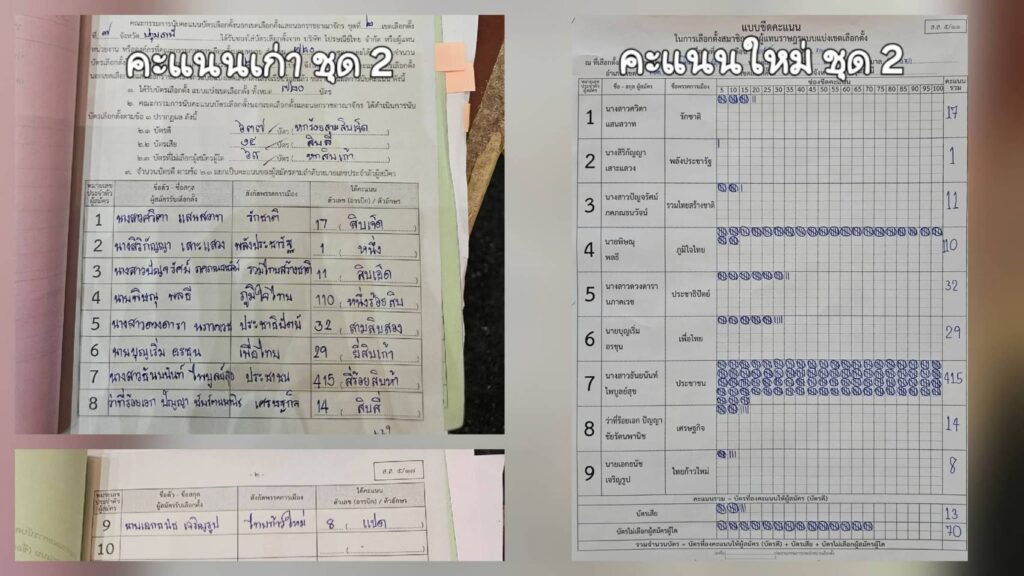 คณะกรรมการนับคะแนนบัตรเลือกตั้งนอกเขตเลือกตั้งและนอกราชอาณาจักร ชุดที่ ๒ เขตเลือกตั้ง
ที่ ๗ จังหวัด ปทุมธานี
คะแนนเก่า ชุด 2
๑. ได้รับบัตรเลือกตั้ง แบบแบ่งเขตเลือกตั้ง ทั้งหมด ๗๒๐ บัตร
๒. คณะกรรมการนับคะแนนบัตรเลือกตั้งนอกเขตเลือกตั้งและนอกราชอาณาจักร ได้ดำเนินการนับ
บัตรเลือกตั้งตามข้อ ๑ ปรากฏผล ดังนี้
๒.๑ บัตรดี ๖๓๗ บัตร ( หกร้อยสามสิบเจ็ด )
๒.๒ บัตรเสีย ๑๔ บัตร ( สิบสี่ )
๒.๓ บัตรที่ไม่เลือกผู้สมัครผู้ใด ๖๙ บัตร ( หกสิบเก้า )
๓. จำนวนบัตรดี ตามข้อ ๒.๑ แยกเป็นคะแนนของผู้สมัครตามลำดับหมายเลขประจำตัวผู้สมัคร
หมายเลขประจำตัวผู้สมัคร ชื่อตัว - ชื่อสกุล ผู้สมัครรับเลือกตั้ง สังกัดพรรคการเมือง ได้คะแนน ตัวเลข (อารบิก) / ตัวอักษร
1 นางสาวศวิตา แสนสวาท รักชาติ 17 ( สิบเจ็ด )
2 นางสิริกัญญา เสาะแสวง พลังประชารัฐ 1 ( หนึ่ง )
3 นางสาวปัญจรัศม์ รวมไทยสร้างชาติ 11 ( สิบเอ็ด )
4 นายพิษณุ พลธี ภูมิใจไทย 110 ( หนึ่งร้อยสิบ )
5 นางสาวดวงดารา นภาเวช ประชาธิปัตย์ 32 ( สามสิบสอง )
6 นายบุญเริ่ม อรชุน เพื่อไทย 29 ( ยี่สิบเก้า )
7 นางสาวธันยนันท์ ไพบูลย์สุข ประชาชน 415 ( สี่ร้อยสิบห้า )
8 ว่าที่ร้อยเอก ปัญญา ชัยรัตนพานิช เศรษฐกิจ 14 ( สิบสี่ )
- ๒ -
ส.ส. ๕/๑๗
หมายเลขประจำตัวผู้สมัคร ชื่อตัว - ชื่อสกุล ผู้สมัครรับเลือกตั้ง สังกัดพรรคการเมือง ได้คะแนน ตัวเลข (อารบิก) / ตัวอักษร
9 นายเอกธนัช เจริญรูป ไทยก้าวใหม่ 8 ( แปด )
10
ส.ส. ๕/๑๑
แบบขีดคะแนน
ในการเลือกตั้งสมาชิกสภาผู้แทนราษฎรแบบแบ่งเขตเลือกตั้ง
คะแนนใหม่ ชุด 2
หมายเลขประจำตัวผู้สมัคร ชื่อ - สกุล ผู้สมัคร ชื่อพรรคการเมือง ช่องขีดคะแนน คะแนนรวม
5 10 15 20 25 30 35 40 45 50 55 60 65 70 75 80 85 90 95 100
1 นางสาวศวิตา แสนสวาท รักชาติ 17
2 นางสิริกัญญา เสาะแสวง พลังประชารัฐ 1
3 นางสาวปัญจรัศม์ ภคภณธนวัจน์ รวมไทยสร้างชาติ 11
4 นายพิษณุ พลธี ภูมิใจไทย 110
5 นางสาวดวงดารา นภาเวช ประชาธิปัตย์ 32
6 นายบุญเริ่ม อรชุน เพื่อไทย 29
7 นางสาวธันยนันท์ ไพบูลย์สุข ประชาชน 415
8 ว่าที่ร้อยเอก ปัญญา ชัยรัตนพานิช เศรษฐกิจ 14
9 นายเอกธนัช เจริญรูป ไทยก้าวใหม่ 8
คะแนนรวม - บัตรที่ลงคะแนนให้ผู้สมัคร (บัตรดี)
บัตรเสีย 13
บัตรไม่เลือกผู้สมัครผู้ใด 70
รวมจำนวนบัตร = บัตรที่ลงคะแนนให้ผู้สมัคร (บัตรดี) + บัตรเสีย + บัตรไม่เลือกผู้สมัครผู้ใด